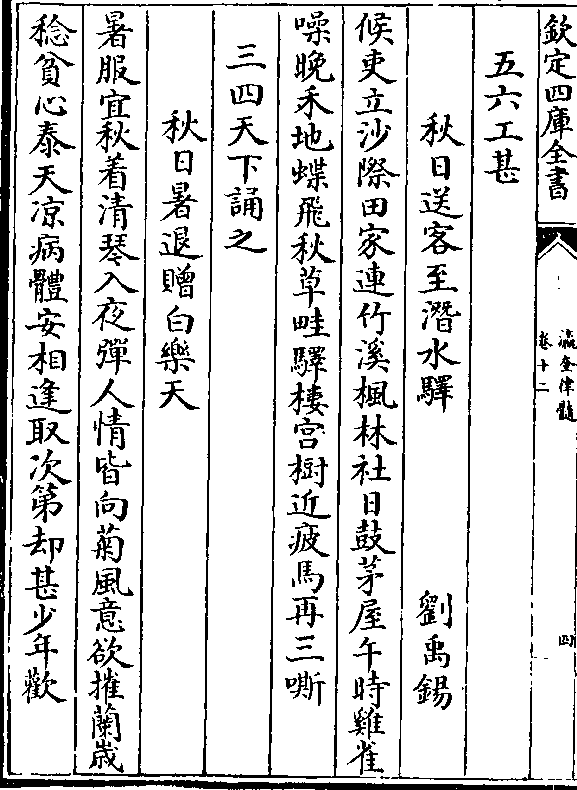 欽定四庫全書
瀛奎律髓
卷十二
四
五六工甚
秋日送客至潛水驛
劉禹錫
候吏立沙際田家連竹溪楓林社日鼓茅屋午時雞雀
噪晚禾地蝶飛秋草畦驛樓宫樹近疲馬再三嘶
三四天下誦之
秋日暑退贈白樂天
暑服宜秋着清琴入夜彈人情皆向菊風意欲摧蘭歲
稔貧心泰天凉病體安相逢取次第却甚少年歡